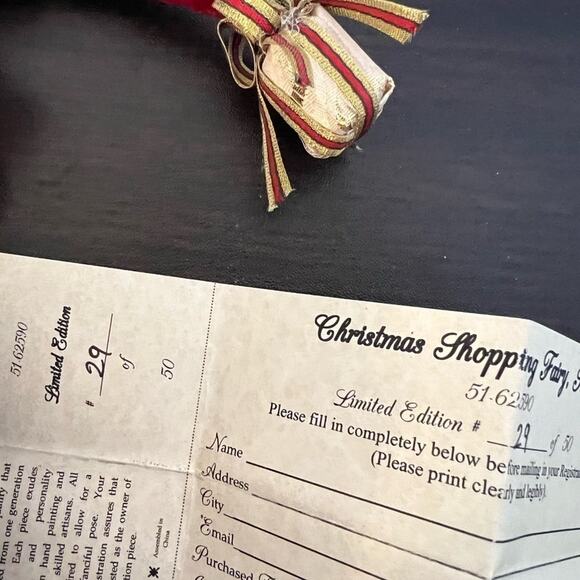 51-62590
Limited Edition
# 29
of
50
that
from one generation
Each piece exudes
and personality
hand painting and
skilled artisans. All
to allow for a
pose. Your
assures that
as the owner of
piece.
Assembled in
China
Christmas Shopping Fairy,
51-62590
Limited Edition # 29 of 50
Please fill in completely below before mailing in your
(Please print clearly and legibly).
Name
Address
City
Email
Purchased